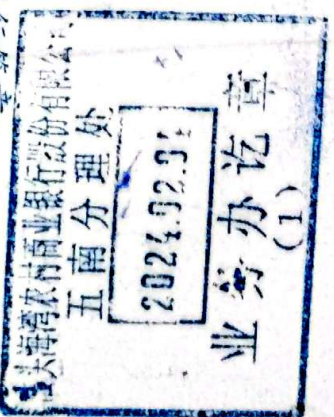 海湾农村商业银行股份有限公司
五南分理处
2024.02.0
业务办讫章
(1)